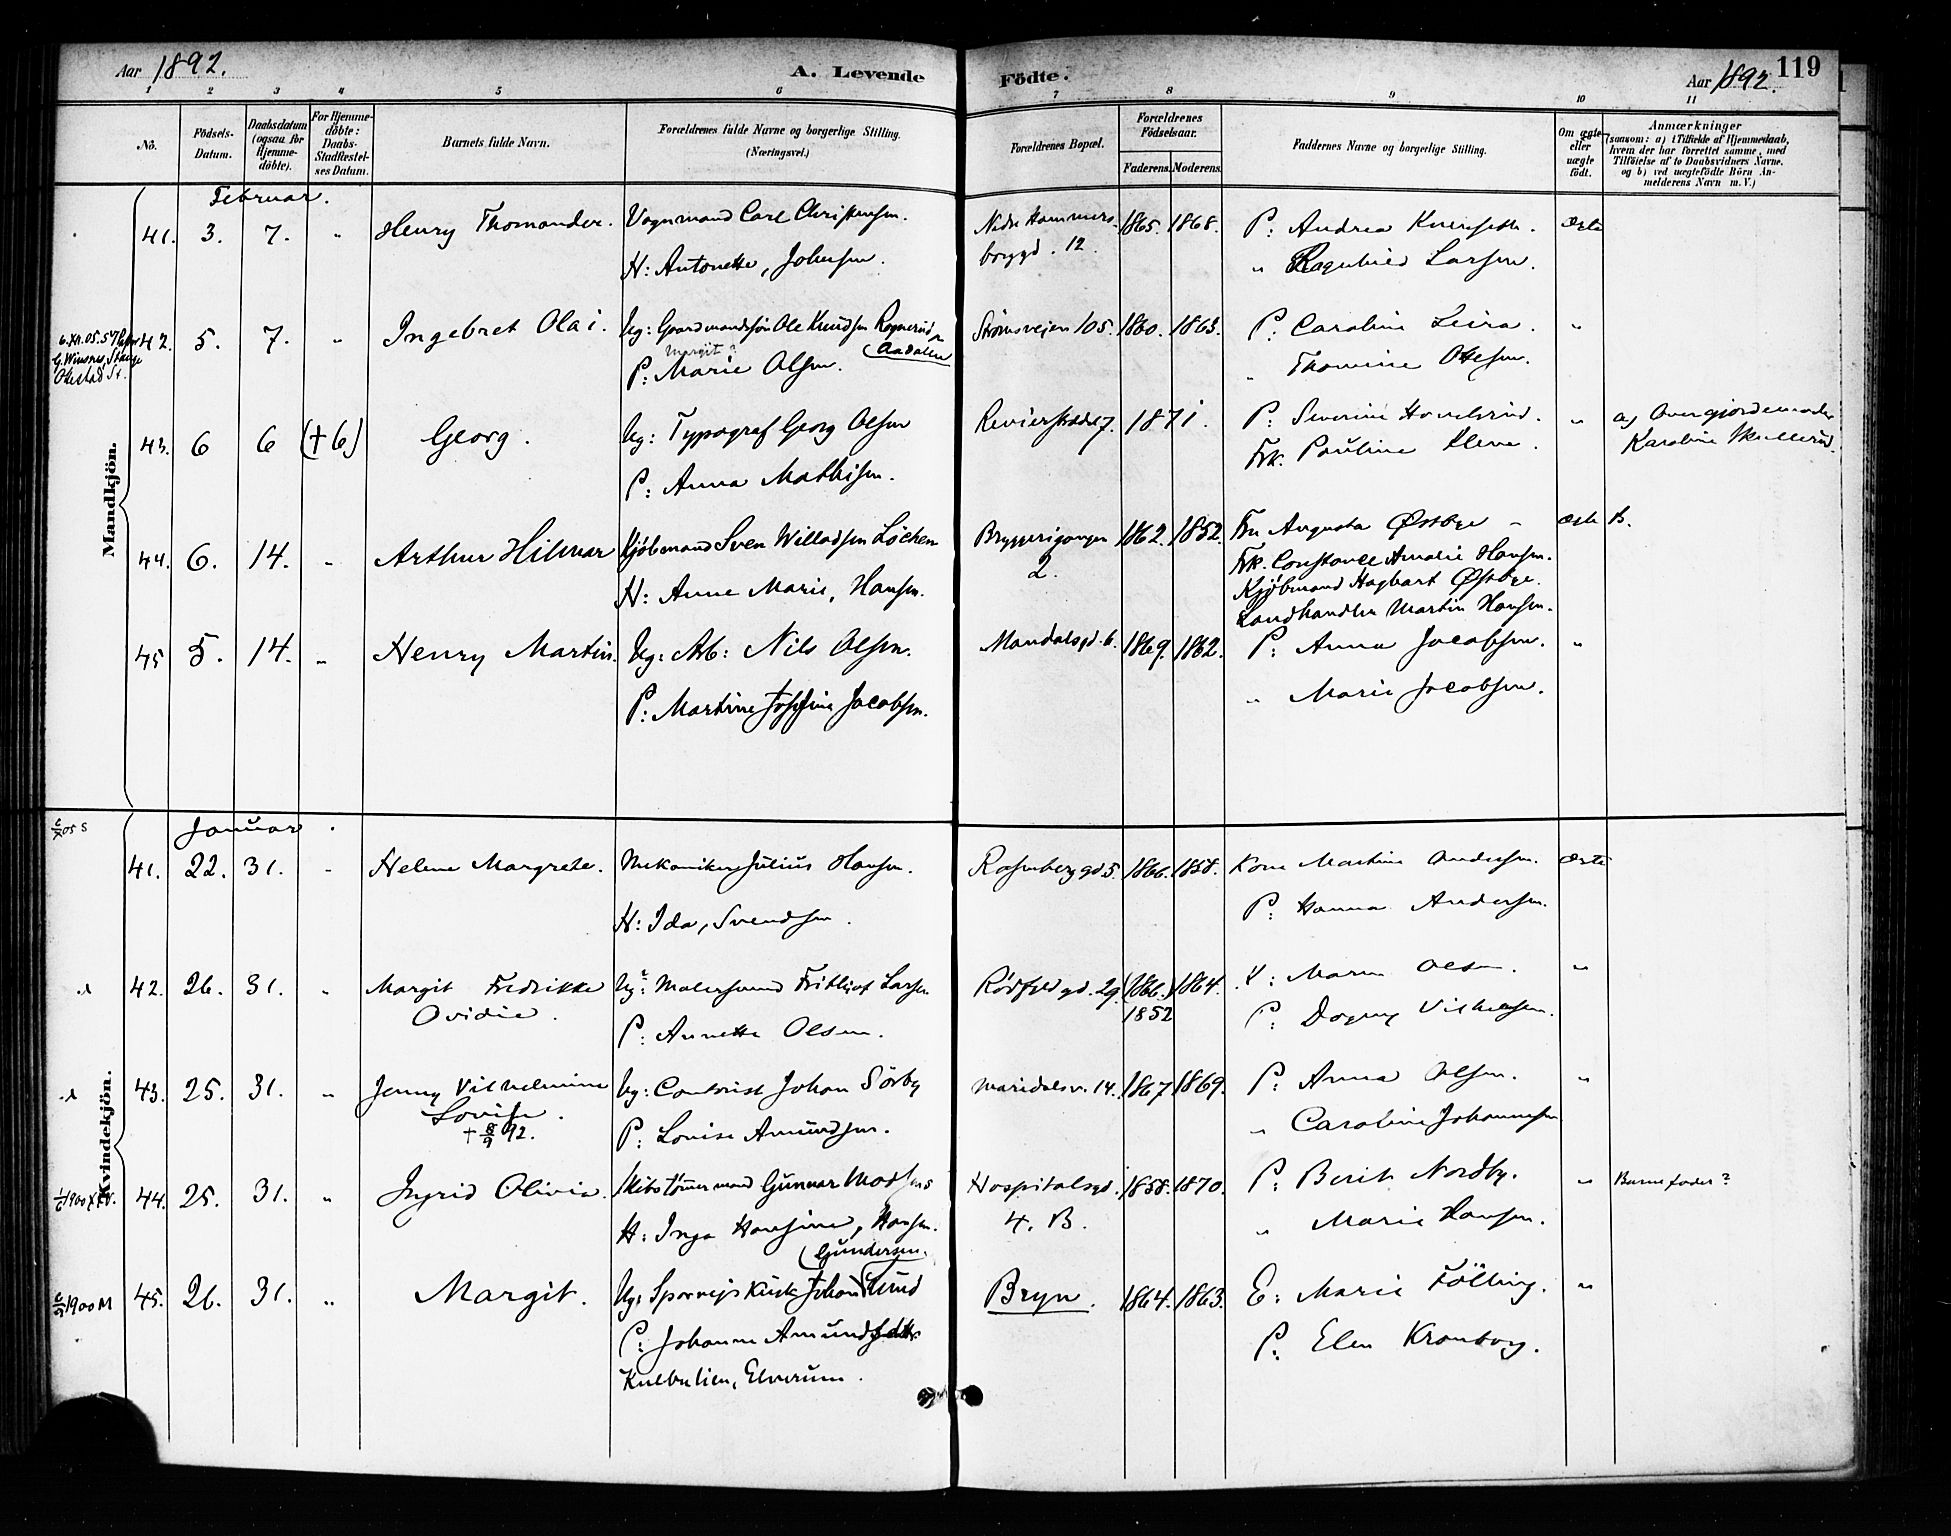 Aar 1892.
A. Levende Födte.
Aar 1892.
119
1 2 3 4 5 6 7 8 9 10 11
No.
Födsels-Datum.
Daabsdatum (ogsaa for Hjemme-döbte).
For Hjemme-döbte: Daabs-Stadfæstel-ses Datum.
Barnets fulde Navn.
Forældrenes fulde Navne og borgerlige Stilling. (Næringsvei.)
Forældrenes Bopæl.
Forældrenes Födselsaar.
Faderens. Moderens.
Faddernes Navne og borgerlige Stilling.
Om ægte eller uægte födt.
Anmærkninger
(saasom: a) i Tilfælde af Hjemmedaab, hvem der har forrettet samme, med Tilföielse af to Daabsvidners Navne. og b) ved uægtefödte Börn An-melderens Navn m. V.)
Mandkjön.
Februar.
41. 3. 7. " Henry Thomander. Vognmand Carl Christensen. Nedre Hammers- 1865. 1868. P: Andrea Ægte
H: Antonette, Johnsen. borggd. 12. " Ragnhild Larsen.
42. 5. 7. " Ingebret Olai. Ug: Gaardmandssøn Ole Knudsen Rognerud Strömsveien 105. 1860. 1863. P: Caroline Leira. "
Margit? Aadalen
P: Marie Olsen. " Thomine Olsen.
43. 6 6 (+6) Georg. Ug: Typograf Georg Olsen Revierstrædet 7. 1871. P: Severine " a) Overgjordemoder
P: Anna Mathisen. Frk. Pauline Karoline
44. 6. 14. " Arthur Hilmar Kjöbmand Sven Willadsen Löcken Bryggerigangen 1862. 1852. Fru Augusta Østbye - ægte B.
H: Anne Marie, Hansen. 2. Frk. Constance Amalie Hansen.
Kjöbmand Hagbart Østbye.
Landhandler Martin Hansen.
45 5. 14. " Henry Martin. Ug: Arb: Nils Olsen. Mandalsgd. 6. 1869. 1862. P: Anna Jacobsen. "
P: Martine Josefine Jacobsen. " Marie Jacobsen.
Kvindekjön.
Januar.
41. 22. 31. " Helene Margrete. Mekaniker Julius Hansen. Rosenborggd 5. 1866. 1858. Kone Martine Andersen. Ægte
H: Ida, Svendsen. P: Hanna Andersen.
42. 26. 31. " Margit Fredrikke Ug: Malersvend Frithjof Larsen Rödfyldgd. 29. (1866.) 1864. K: Maren Olsen. "
Ovidie. 1852
P: Annette Olsen. P: Dagny
43. 25. 31. " Jenny Vilhelmine Ug: Contorist Johan Sörby Maridalsv. 14. 1867 1869. P: Anna Olsen. "
Lovise. + 8/9 92. P: Lovise Amundsen. " Caroline Johannesen
44. 25. 31. " Ingrid Olivia. Skibstömmermand Gunnar Hospitalsgd. 1858. 1870. P: Berit Nordby. " Barnefader?
H: Inga Hansine, Hansen. 4. B. " Marie Hansen.
(Gundersen.
1900 M 45. 26. 31. " Margit. Ug: Sporveiskusk Johan Lund Bryn. 1864. 1863. E: Marie Fölling. "
P: Johanne Amundsdtr. P: Elen Kronborg.
Elverum.